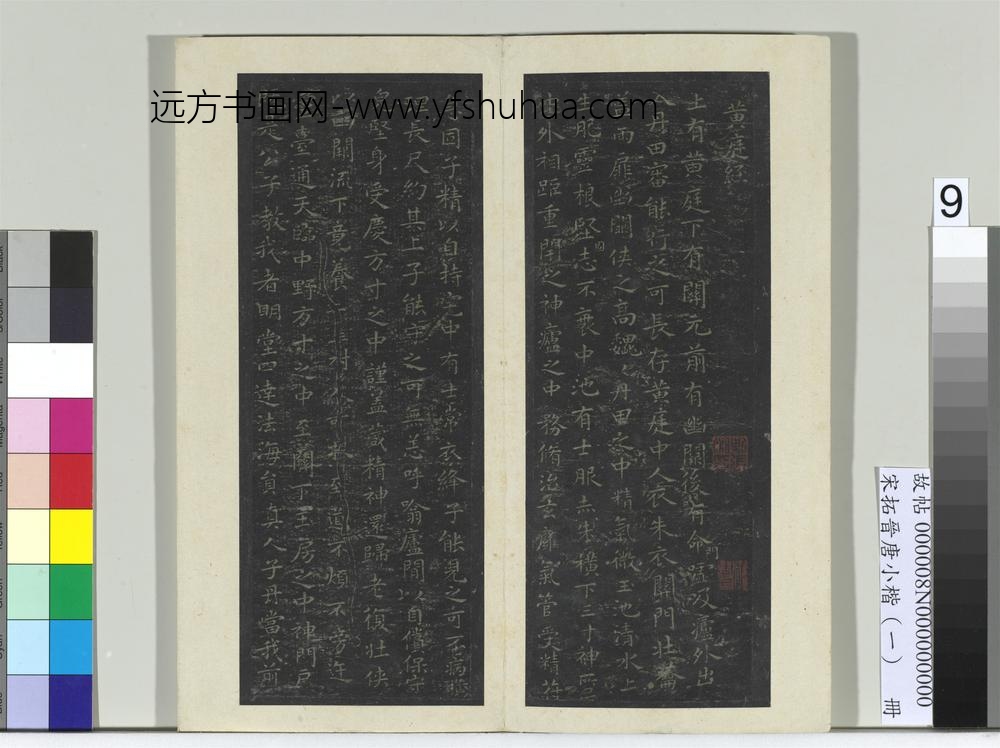 远方书画网-www.yfshuhua.com
黃庭經
上有黃庭下有關元前有幽關後有命門噓吸廬外出
入丹田審能行之可長存黃庭中人衣朱衣關門壯蘥
兩扉幽闕俠之高巍〻丹田之中精氣微玉池清水上
生肥靈根堅固志不衰中池有士服赤朱橫下三寸神所居
中外相距重閉之神廬之中務脩治玄膺氣管受精符
固子精以自持宅中有士常衣絳子能見之可不病橫
長尺約其上子能守之可無恙呼噏廬閒以自償保守
堅身受慶方寸之中謹蓋藏精神還歸老復壯俠
以幽闕流下竟養子玉樹令可杖至道不煩不旁迕
靈臺通天臨中野方寸之中至關下玉房之中神門戶
是公子教我者明堂四達法海員真人子丹當我前
9
故帖 000008N000000000
宋拓晉唐小楷（一） 冊